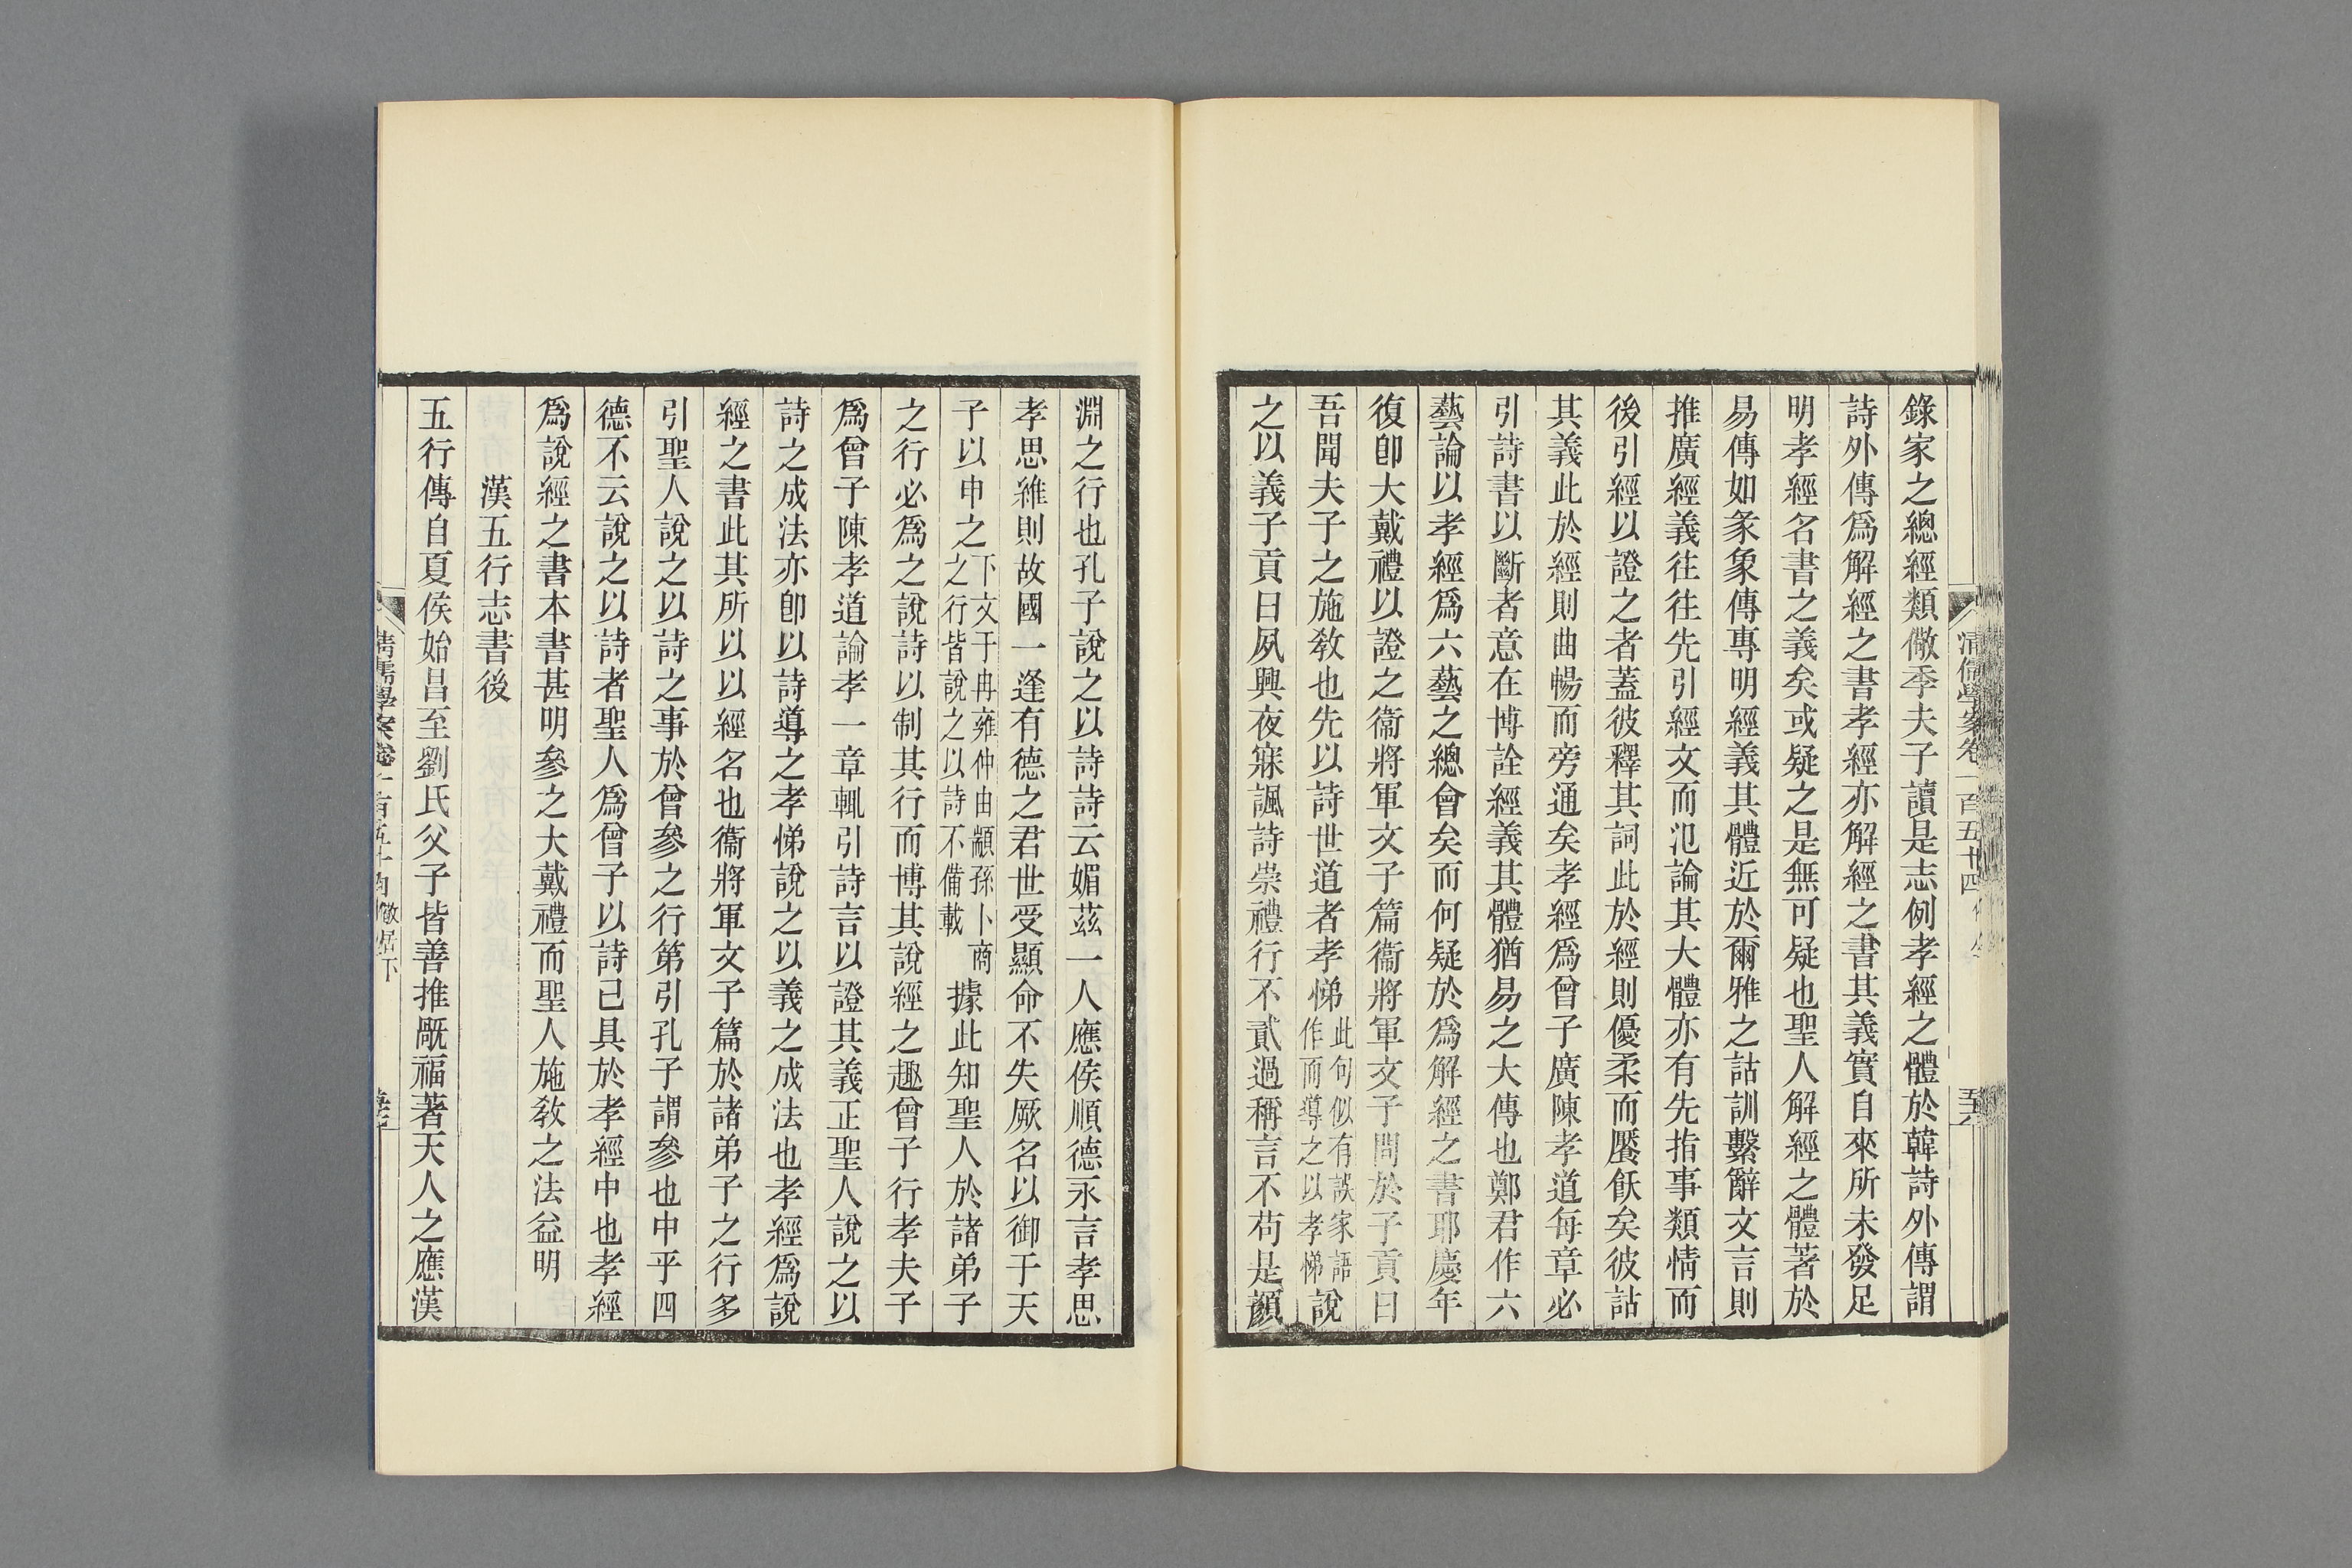 錄家之總經類儆季夫子讀是志例孝經之體於韓詩外傳謂
詩外傳爲解經之書孝經亦解經之書其義實自來所未發足
明孝經名書之義矣或疑之是無可疑也聖人解經之體著於
易傳如彖象傳專明經義其體近於爾雅之詁訓繫辭文言則
推廣經義往往先引經文而氾論其大體亦有先指事類情而
後引經以證之者蓋彼釋其詞此於經則優柔而饜飫矣彼詁
其義此於經則曲暢而旁通矣孝經爲曾子廣陳孝道每章必
引詩書以斷者意在博詮經義其體猶易之大傳也鄭君作六
藝論以孝經爲六藝之總會矣而何疑於爲解經之書耶慶年
復卽大戴禮以證之衞將軍文子篇衞將軍文子問於子貢曰
吾聞夫子之施敎也先以詩世道者孝悌此句似有誤家語作而導之以孝悌說
之以義子貢曰夙興夜寐諷詩崇禮行不貳過稱言不苟是顏
淵之行也孔子說之以詩詩云媚茲一人應侯順德永言孝思
孝思維則故國一逢有德之君世受顯命不失厥名以御于天
子以申之下文于冉雍仲由顓孫卜商之行皆說之以詩不備載據此知聖人於諸弟子
之行必爲之說詩以制其行而博其說經之趣曾子行孝夫子
爲曾子陳孝道論孝一章輒引詩言以證其義正聖人說之以
詩之成法亦卽以詩導之孝悌說之以義之成法也孝經爲說
經之書此其所以以經名也衞將軍文子篇於諸弟子之行多
引聖人說之以詩之事於曾參之行第引孔子謂參也中乎四
德不云說之以詩者聖人爲曾子以詩已具於孝經中也孝經
爲說經之書本書甚明參之大戴禮而聖人施敎之法益明
漢五行志書後
五行傳自夏侯始昌至劉氏父子皆善推厩福著天人之應漢
清儒學案卷一百五十四
清儒學案卷一百五十四 儆居下